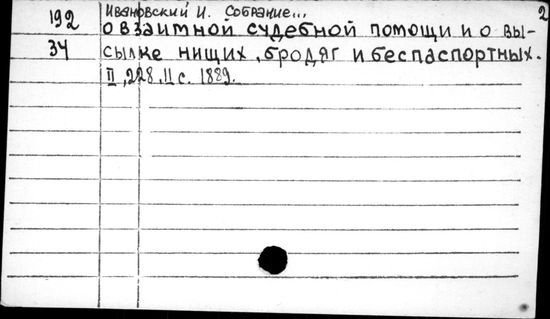 192 Ивановский И. Собрание... 2
о взаимной судебной помощи и о вы-
34 сылке нищих, бродяг и беспаспортных.
II, 228, II с. 1889.